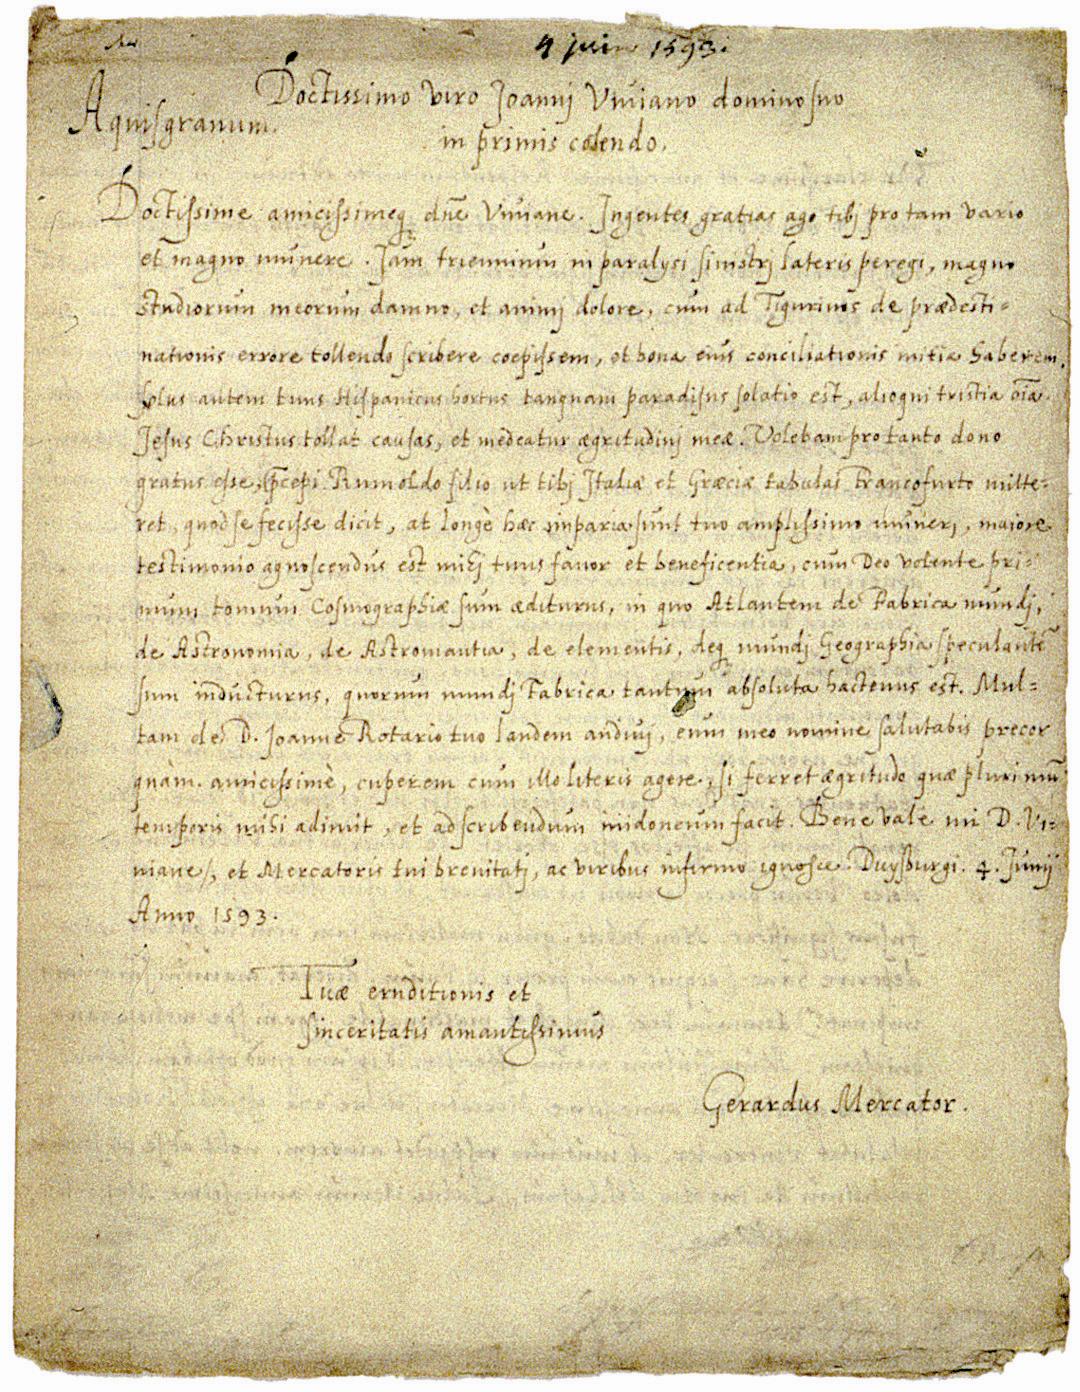 4 juin 1593.
Doctissimo viro Joannj Viviano domino suo
Aquisgranum.
in primis colendo.
Doctissime amicissimeq, dñe Viviane. Ingentes gratias ago tibj pro tam vario
et magno munere. Jam triennium in paralysi sinistrj lateris peregi, magno
studiorum meorum damno, et animj dolore, cum ad Tigurinos de prædesti=
nationis errore tollendo scribere coepissem, et bona eius conciliationis initia haberem,
solus autem tuus Hispanicus hortus tanquam paradisus solatio est, alioqui tristia oīa.
Jesus Christus tollat causas, et medeatur ægritudinj meæ. Volebam pro tanto dono
gratus esse, p̄cepi Rumoldo filio ut tibj Italiæ et Græciæ tabulas Francofurto mitte=
ret, quod se fecisse dicit, at longè hæc imparia sunt tuo amplissimo munerj, maiore
testimonio agnoscendus est mihj tuus favor et beneficentia, cum Deo volente pri=
mum tomum Cosmographiæ sum æditurus, in quo Atlantem de Fabrica mundj,
de Astronomia, de Astromantia, de elementis, deq, mundj Geographia speculantē
sum inducturus, quorum mundj Fabrica tantum absoluta hactenus est. Mul=
tam de D. Joanne Rotario tuo laudem audivj, eum meo nomine salutabis precor
quàm amicissimè, cuperem cum illo literis agere, si ferret ægritudo quæ plurimū
temporis mihi adimit, et ad scribendum inidoneum facit. Bene vale mi D. Vi=
viane, et Mercatoris tui brevitatj, ac viribus infirmo ignosce. Duysburgi. 4. Junij
Anno 1593.
Tuæ eruditionis et
sinceritatis amantissimus
Gerardus Mercator.